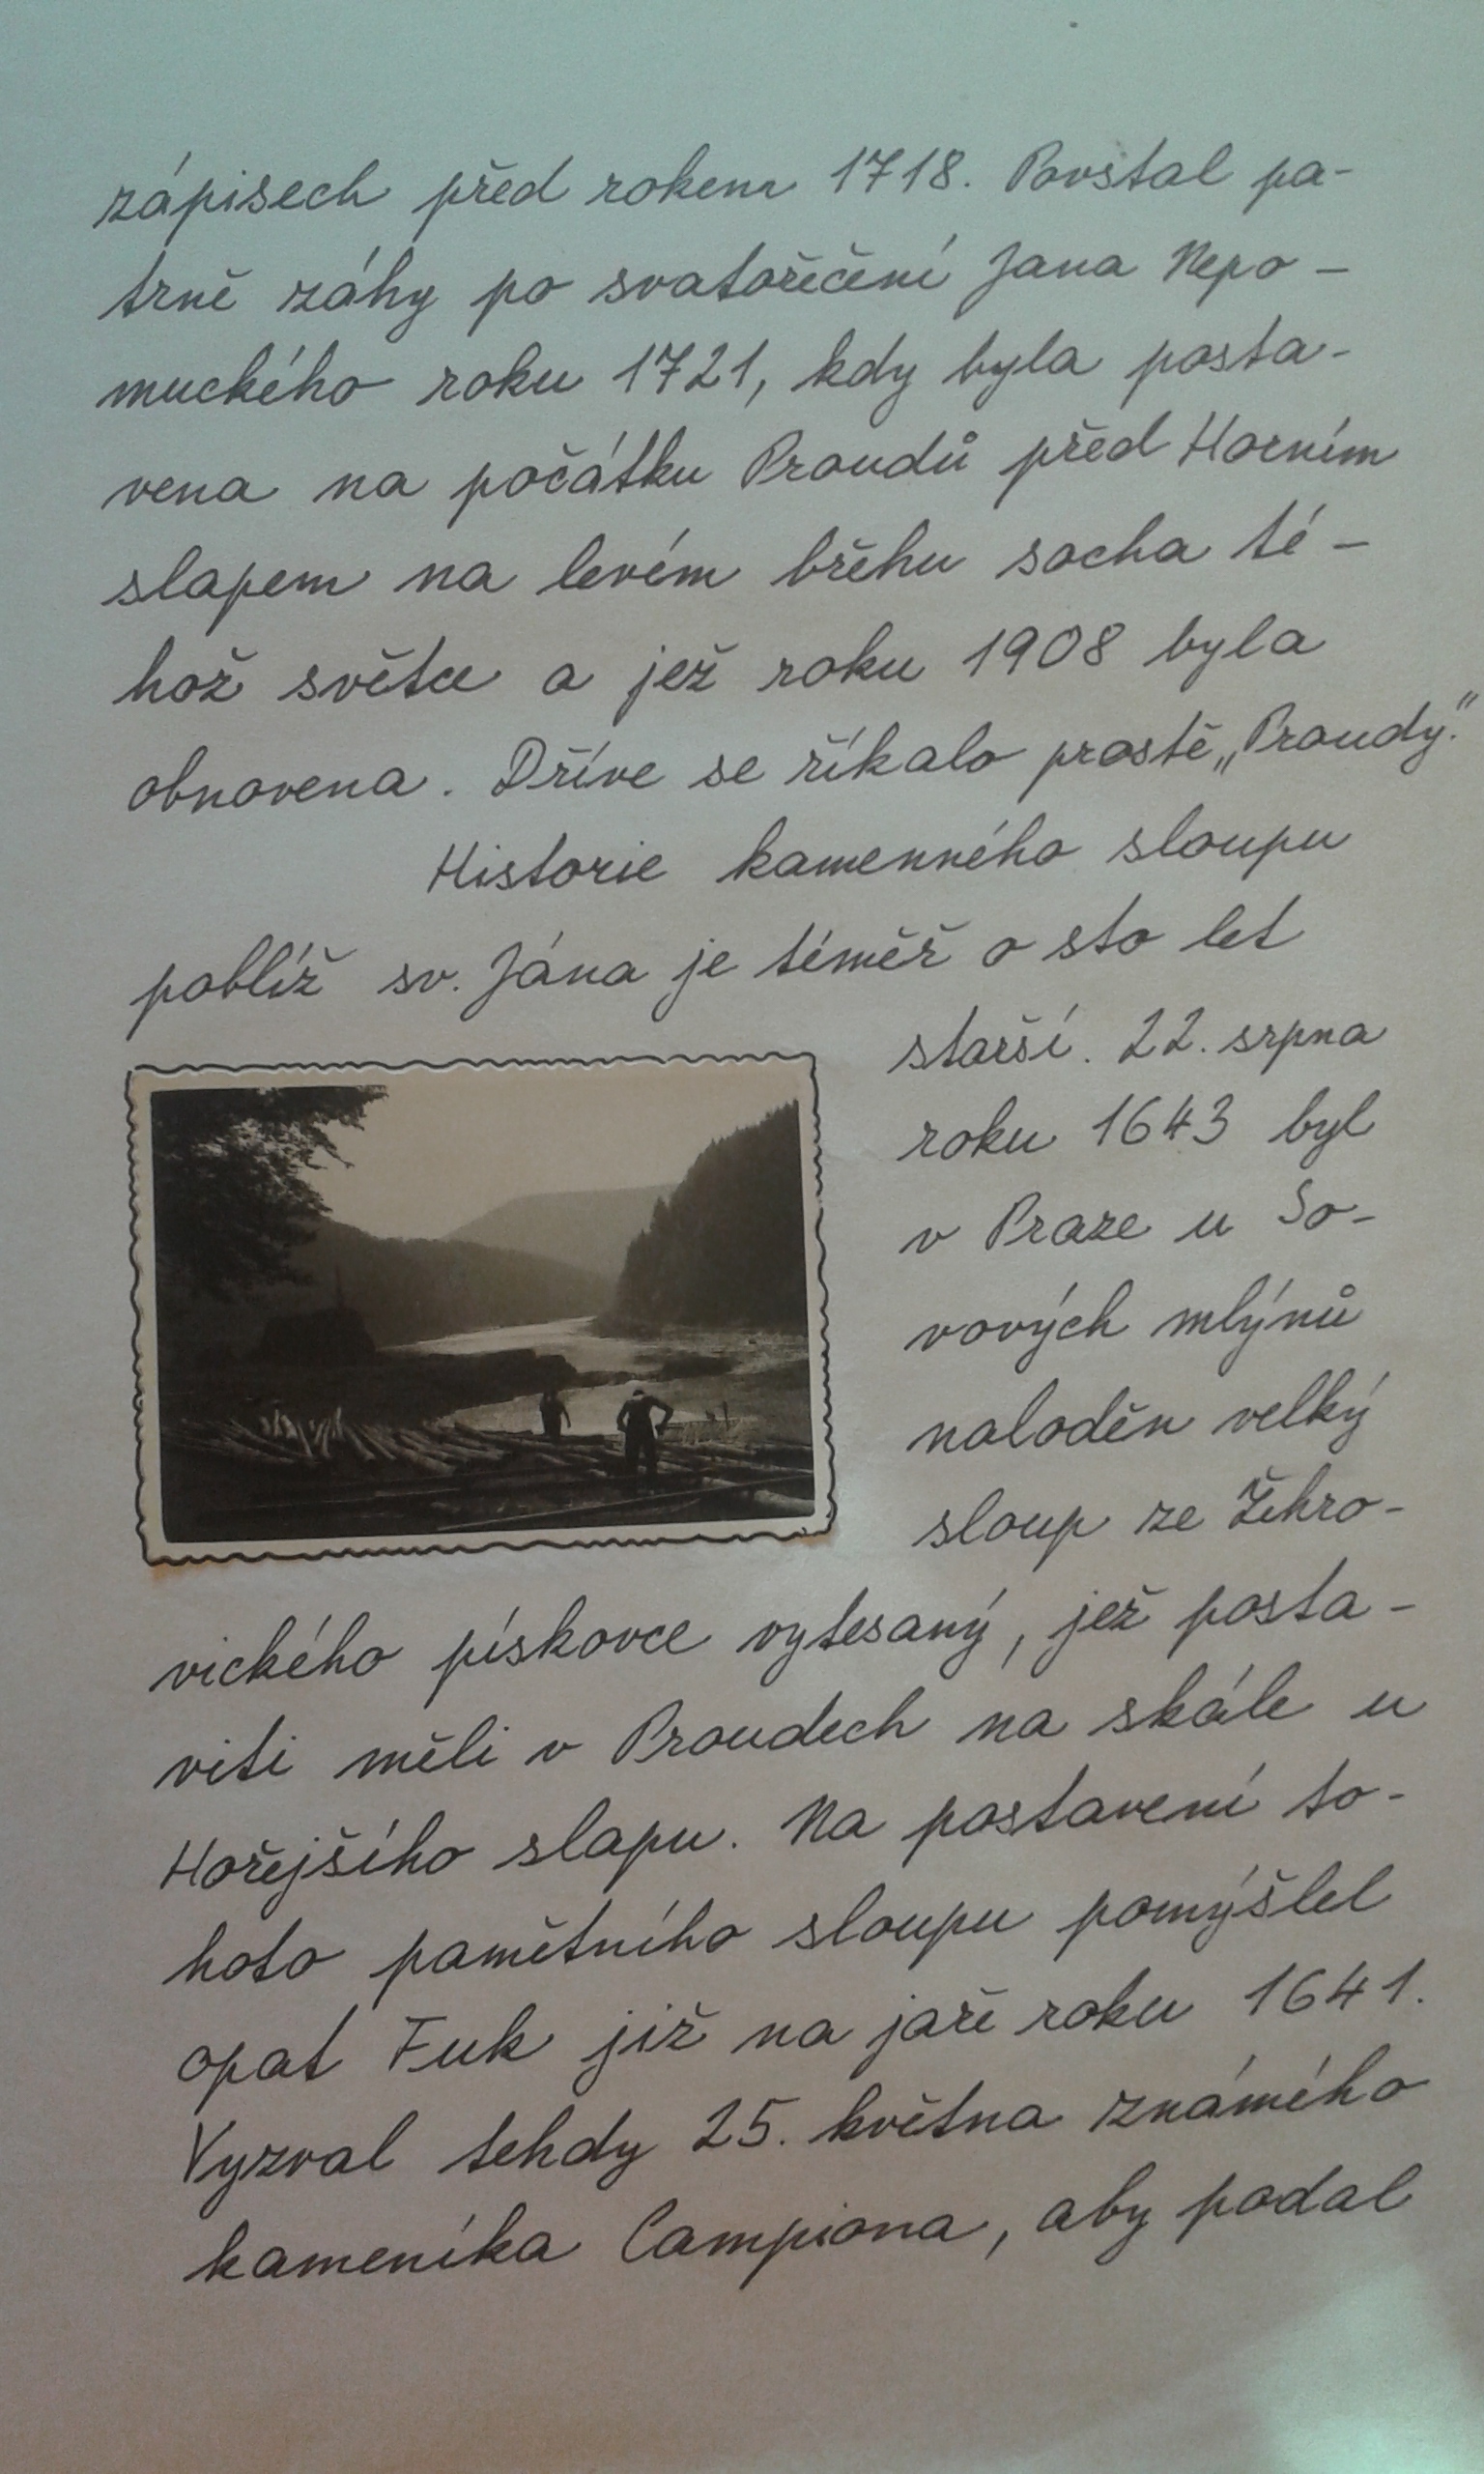 zápisech před rokem 1718. Povstal pa-
trně záhy po svatořečení Jana Nepo-
muckého roku 1721, kdy byla posta-
vena na počátku Proudů před Horním
slapem na levém břehu socha té-
hož světce a jež roku 1908 byla
obnovena. Dříve se říkalo prostě „Proudy.“
Historie kamenného sloupu
poblíž sv. Jána je téměř o sto let
starší. 22. srpna
roku 1643 byl
v Praze u So-
vových mlýnů
naloděn velký
sloup ze Žehro-
vického pískovce vytesaný, jež posta-
viti měli v Proudech na skále u
Hořejšího slapu. Na postavení to-
hoto pamětního sloupu pomýšlel
opat Fuk již na jaře roku 1641.
Vyzval tehdy 25. května známého
kameníka Campiona, aby podal